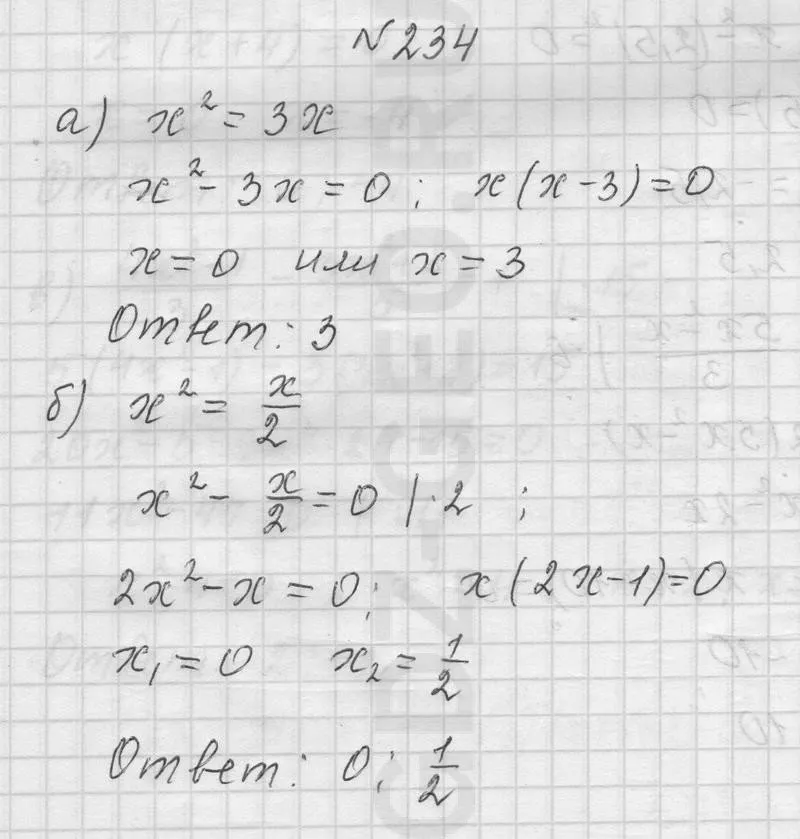 №234
а) x² = 3x
x² - 3x = 0 ; x(x-3) = 0
x = 0 или x = 3
Ответ: 3
б) x² = x/2
x² - x/2 = 0 |·2 ;
2x² - x = 0; x(2x-1) = 0
x₁ = 0 x₂ = 1/2
Ответ: 0; 1/2
GDZ-GEO.RU